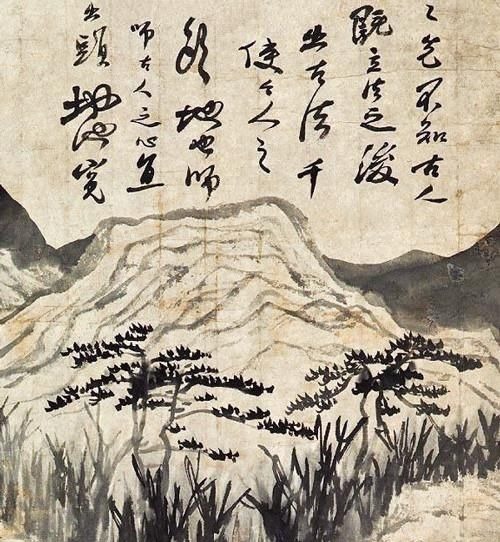 之先不知古人
既立法之後
出古法千
使今人之
地也師
師古人之心宜
出頭地也冤